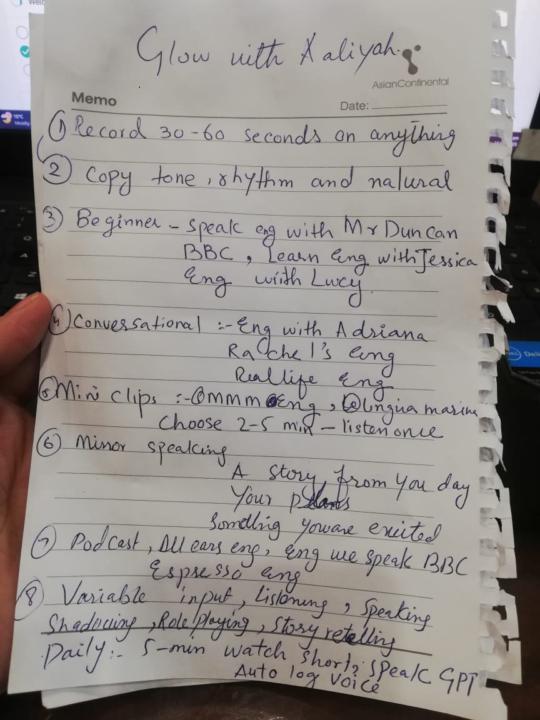 Glow with Aaliyah
AsianContinental
Memo
Date:
① Record 30-60 seconds on anything
② Copy tone, rhythm and natural
③ Beginner - Speak eng with Mr Duncan
BBC, Learn Eng with Jessica
Eng with Lucy.
④ Conversational :- Eng with Adriana
Rachel's Eng
Reallife Eng
⑤ Mini clips :- @mmmEng, @linguamarina
Choose 2-5 min - listen once
⑥ Minor speaking
A story from you day
Your plans
Somthing you are excited
⑦ Podcast, All ears eng, Eng we speak BBC
Espresso eng
⑧ Variable input, listening, speaking
Shadowing, Role playing, Story retelling
Daily:- 5-min watch short, speak GPT
Auto log voice